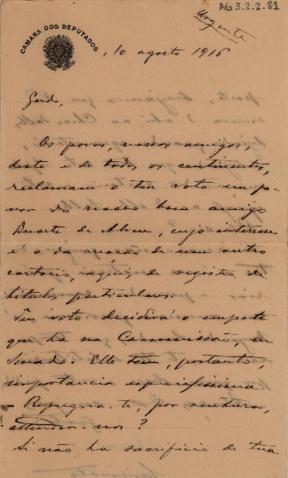 AG 3.2.2.81
Urgente
CAMARA DOS DEPUTADOS
10 agosto 1916
Os povos, nossos amigos,
deste e de todos os continentes,
reclamam o teu voto em fa-
vor do nosso bom amigo
Duarte de Abreu, cujo interesse
é o da creação de um outro
cartorio, aqui, de registro de
titulos particulares.
Teu voto decidirá o empate
que ha na Commissão, no
Senado. Elle tem, portanto,
importancia especialissima.
Repugna-te, por ventura,
attender-nos?
Si não ha sacrificio de tua